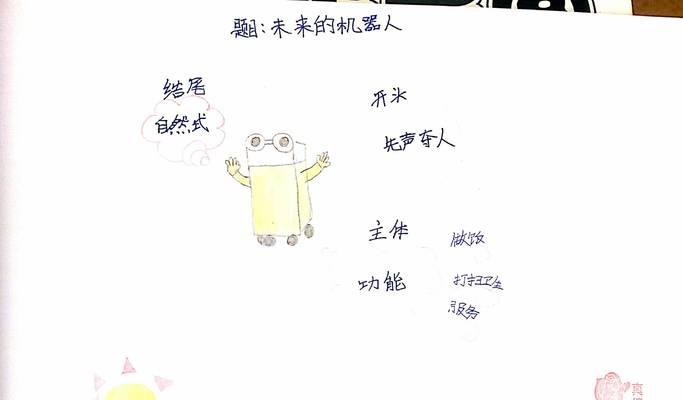 题目:未来的机器人
结尾
自然式
开头
先声夺人
主体
功能
做饭
打扫卫生
服务